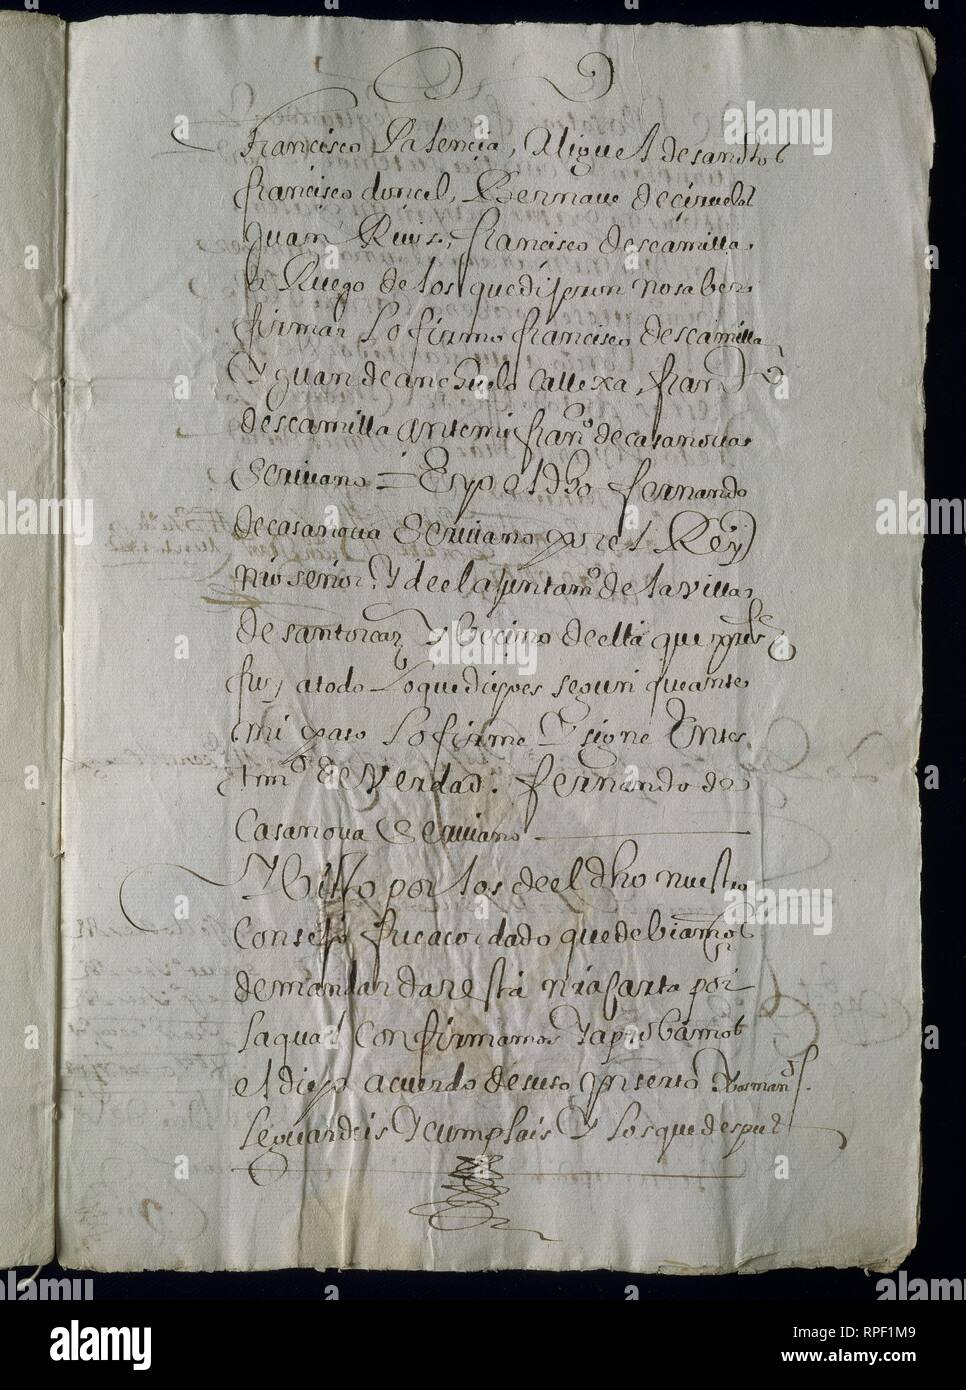 Francisco Palencia, Miguel de sandhob
francisco donçel, Bernave de çiruelos
Juan Ruis, francisco descamilla
a Ruego de los que dijeron no saber
firmar lo firmo francisco descamilla
Y Juan de anchuelo Callexa, fran
descamilla ante mi fran.co de casanova
Scriuano = E yo el dho fernando
de casanova Scriuano por el Rey
nro señor Y de el ajuntam.to de la villa
de santorcaz Y Beçino de ella que
fuy a todo lo que dijo es segun que ante
mi paso lo firme Y signe En tes
tim.o de Verdad. fernando de
Casanova Scriuano
Y Visto por los de el dho nuestro
Consejo fue acordado que debiamos
de mandar dar esta nra Carta por
la qual Confirmamos Y aprobamos
el dicho acuerdo de suso ynserto
le guardeis Y cumplais Y los que despues
alamy
a
alamy
Image ID: RPF1M9
www.alamy.com